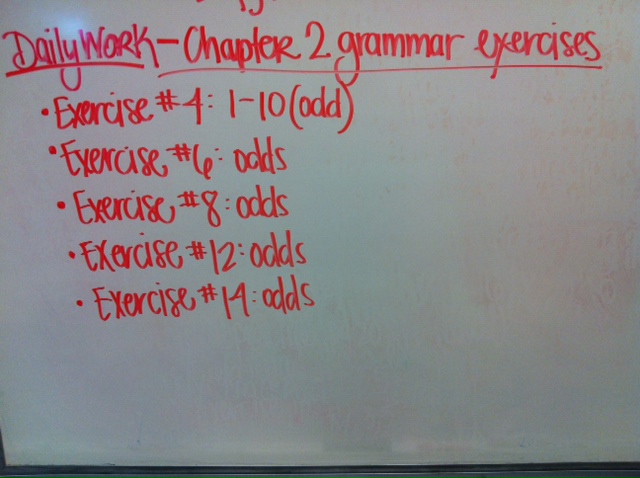 Daily Work - Chapter 2 grammar exercises
• Exercise #4: 1-10 (odd)
• Exercise #6: odds
• Exercise #8: odds
• Exercise #12: odds
• Exercise #14: odds